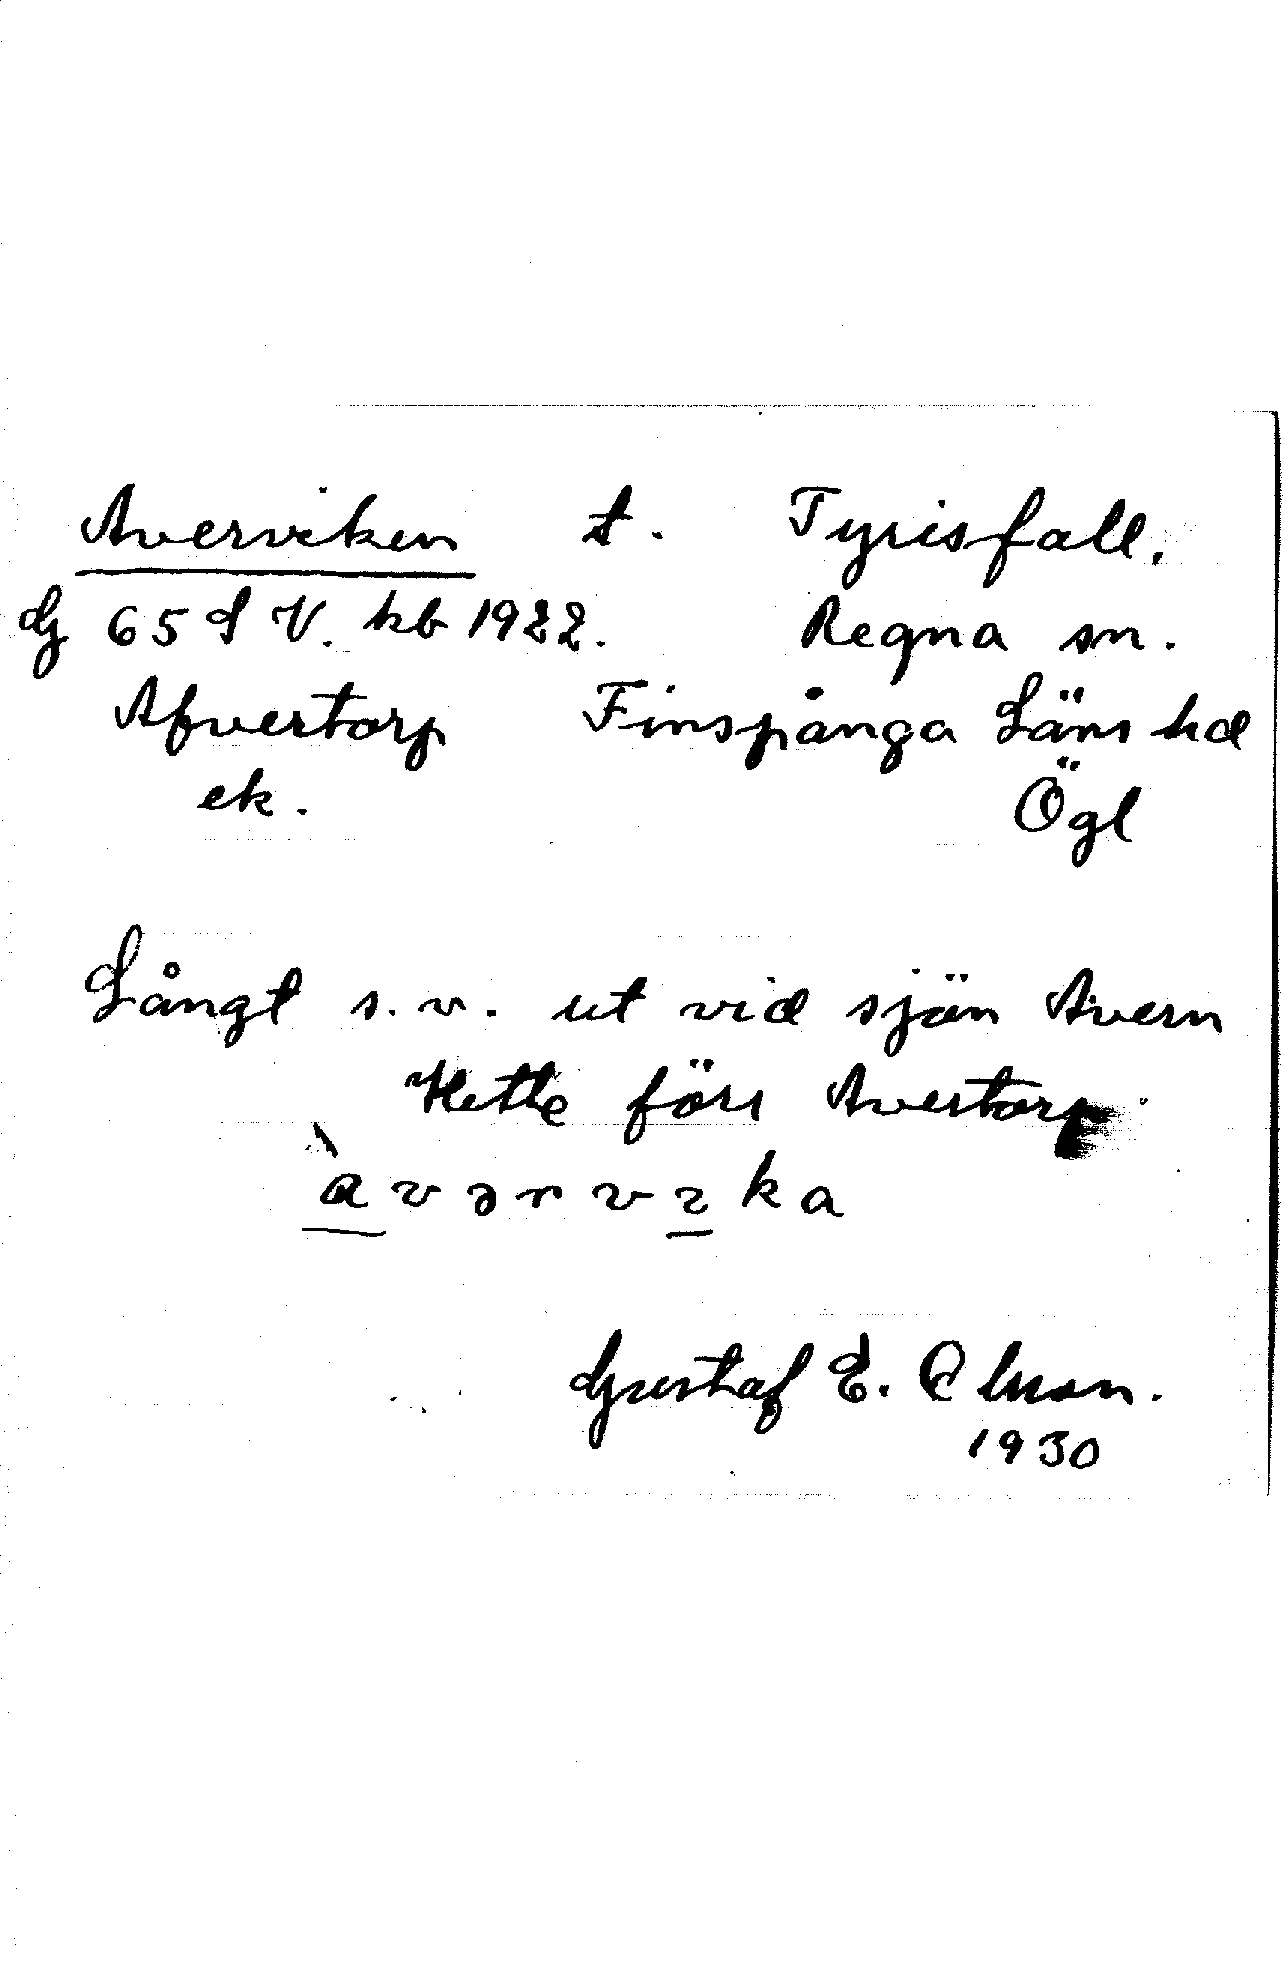 Averviken t. Tyrisfall.
G 65 S V. kb 1922. Regna sn.
Afvertorp Finspånga Läns hd
ek. Ögl
Långt s.v. ut vid sjön Avern
Hette förr Avertorp
àvərvıka
Gustaf E.
1930